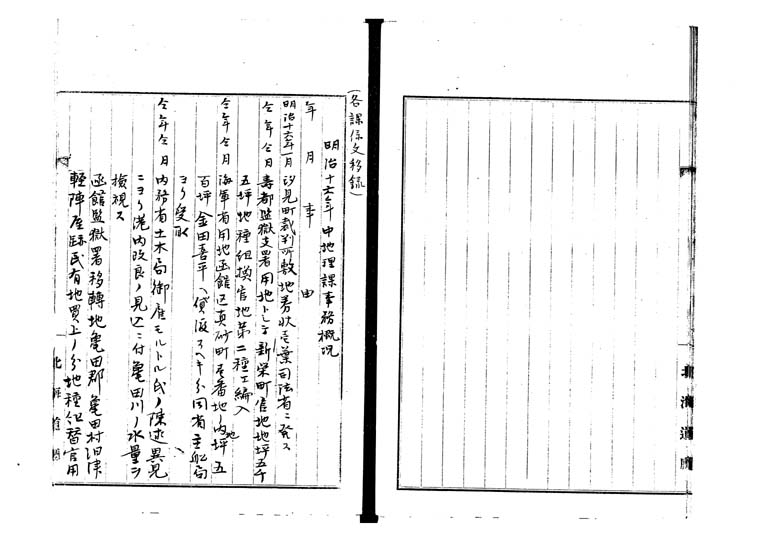 (各課係文移録)
明治十六年中地理課事務概況
年 月 事 由
明治十六年一月 汐見町裁判所敷地券状壱葉司法省ニ発ス
仝年仝月 壽都監獄支署用地トシテ新栄町官地地坪五千
五坪地種組換官地第二種エ編入
仝年仝月 海軍省用地函館区真砂町壱番地ノ内地坪五
百坪金田喜平ヘ貸渡スヘキ分同省主船局
ヨリ受取
仝年仝月 内務省土木局御雇モルトル氏ノ陳述異見
ニヨリ港内改良ノ見込ニ付亀田川ノ水量ヲ
検視ス
函館監獄署移轉地亀田郡亀田村旧津
軽陣屋跡民有地買上ノ分地種組替官用
北海道廳